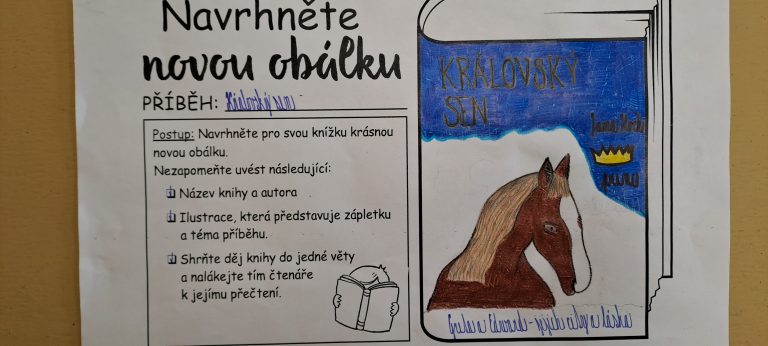 Navrhněte
novou obálku
PŘÍBĚH: Královský sen
Postup: Navrhněte pro svou knížku krásnou
novou obálku.
Nezapomeňte uvést následující:
Název knihy a autora
Ilustrace, která představuje zápletku
a téma příběhu.
Shrňte děj knihy do jedné věty
a nalákejte tím čtenáře
k jejímu přečtení.
KRÁLOVSKÝ
SEN
Jana
a Edwarda - jejich city a láska